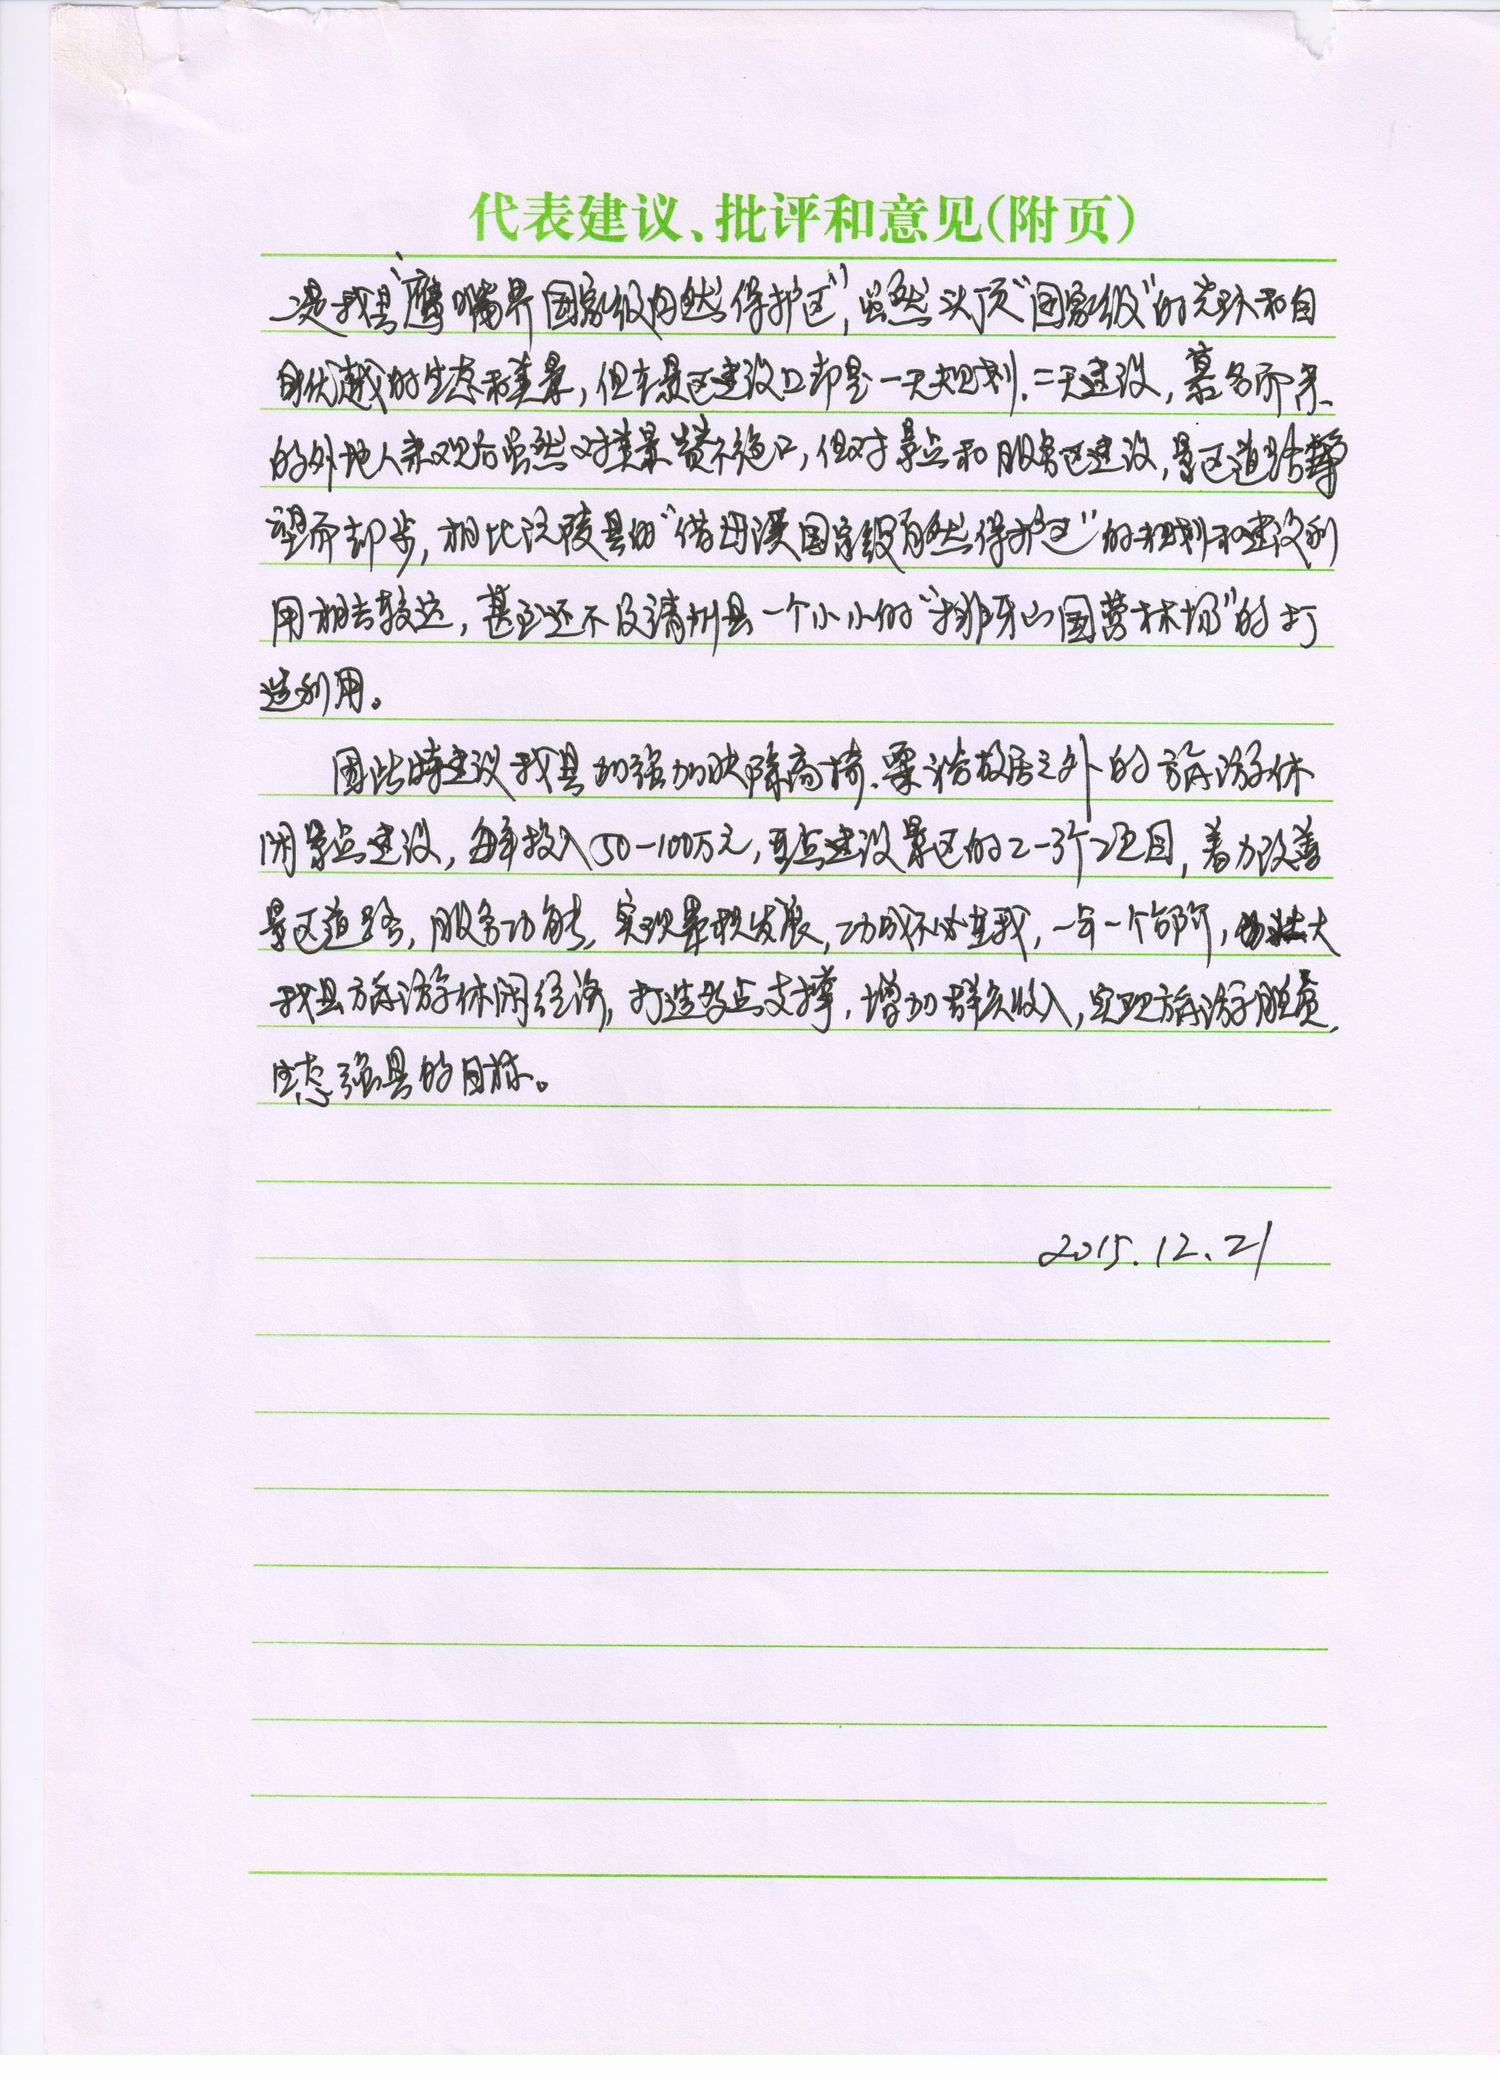 代表建议、批评和意见(附页)
二是我县“鹰嘴界国家级自然保护区”，虽然头顶“国家级”的光环和自
身优越的生态和美景，但在景区建设上却是一无规划．二无建设，慕名而来
的外地人参观后虽然对美景赞不绝口，但对景点和服务区建设，景区道路
望而却步，相比沅陵县的“借母溪国家级自然保护区”的规划和建设利
用相去较远，甚至还不及靖州县一个小小的“排牙山国营林场”的打
造利用。
因此特建议我县加强加快除高椅、粟裕故居之外的旅游休
闲景点建设，每年投入50—100万元，重点建设景区的2—3个项目，着力改善
景区道路，服务功能，实现累积发展，功成不必在我，一年一个台阶，壮大
我县旅游休闲经济，打造多点支撑，增加群众收入，实现旅游脱贫、
生态强县的目标。
2015.12.21